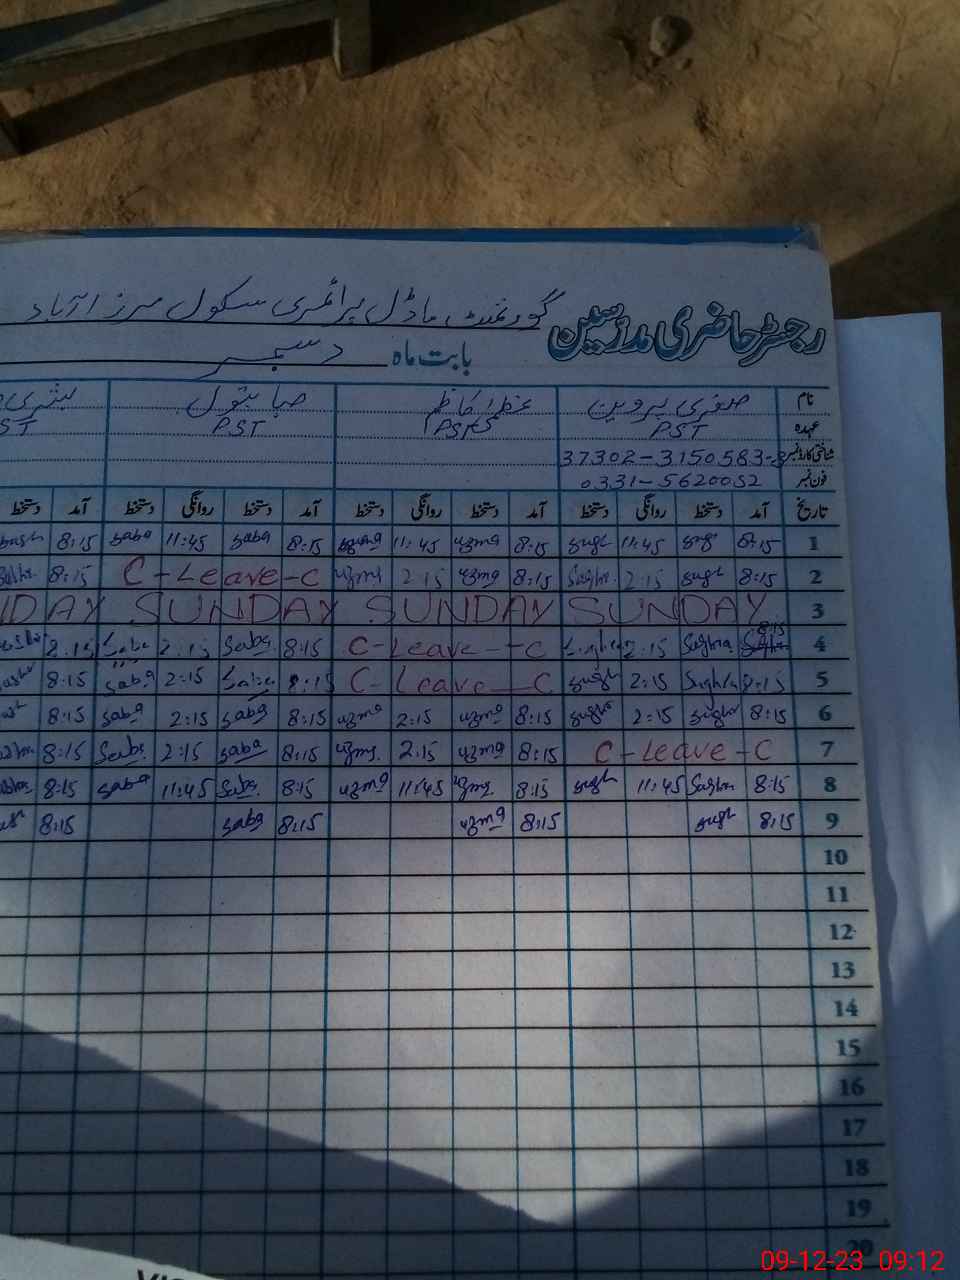 گورنمنٹ ماڈل پرائمری سکول مرزا آباد
رجسٹر حاضری مدرسین
بابت ماہ دسمبر
نام صغری پروین عظمیٰ کاظم صبا بتول بشری
عہدہ PST PST PST ST
شناختی کارڈ نمبر 37302-3150583-8
فون نمبر 0331-5620052
تاریخ آمد دستخط روانگی دستخط آمد دستخط روانگی دستخط آمد دستخط روانگی دستخط آمد دستخط
1 8:15 sugh 11:45 sugh 8:15 uzma 11:45 uzma 8:15 saba 11:45 saba 8:15
2 8:15 sugh 2:15 Sughra 8:15 uzma 2:15 uzma C-Leave-C 8:15
3 SUNDAY SUNDAY SUNDAY NDAY
4 8:15 Sughra 2:15 Sughra C-Leave-C 8:15 Saba 2:15 Saba 8:15
5 8:15 Sughra 2:15 sugh C-Leave-C 8:15 Saba 2:15 Saba 8:15
6 8:15 sughr 2:15 sughr 8:15 uzma 2:15 uzma 8:15 saba 2:15 saba 8:15
7 C-Leave-C 8:15 uzma 2:15 uzma 8:15 saba 2:15 Saba 8:15
8 8:15 Saghra 11:45 sugh 8:15 uzma 11:45 uzma 8:15 Saba 11:45 saba 8:15
9 8:15 sugh 8:15 uzma 8:15 saba 8:15
10
11
12
13
14
15
16
17
18
19
20
09-12-23 09:12